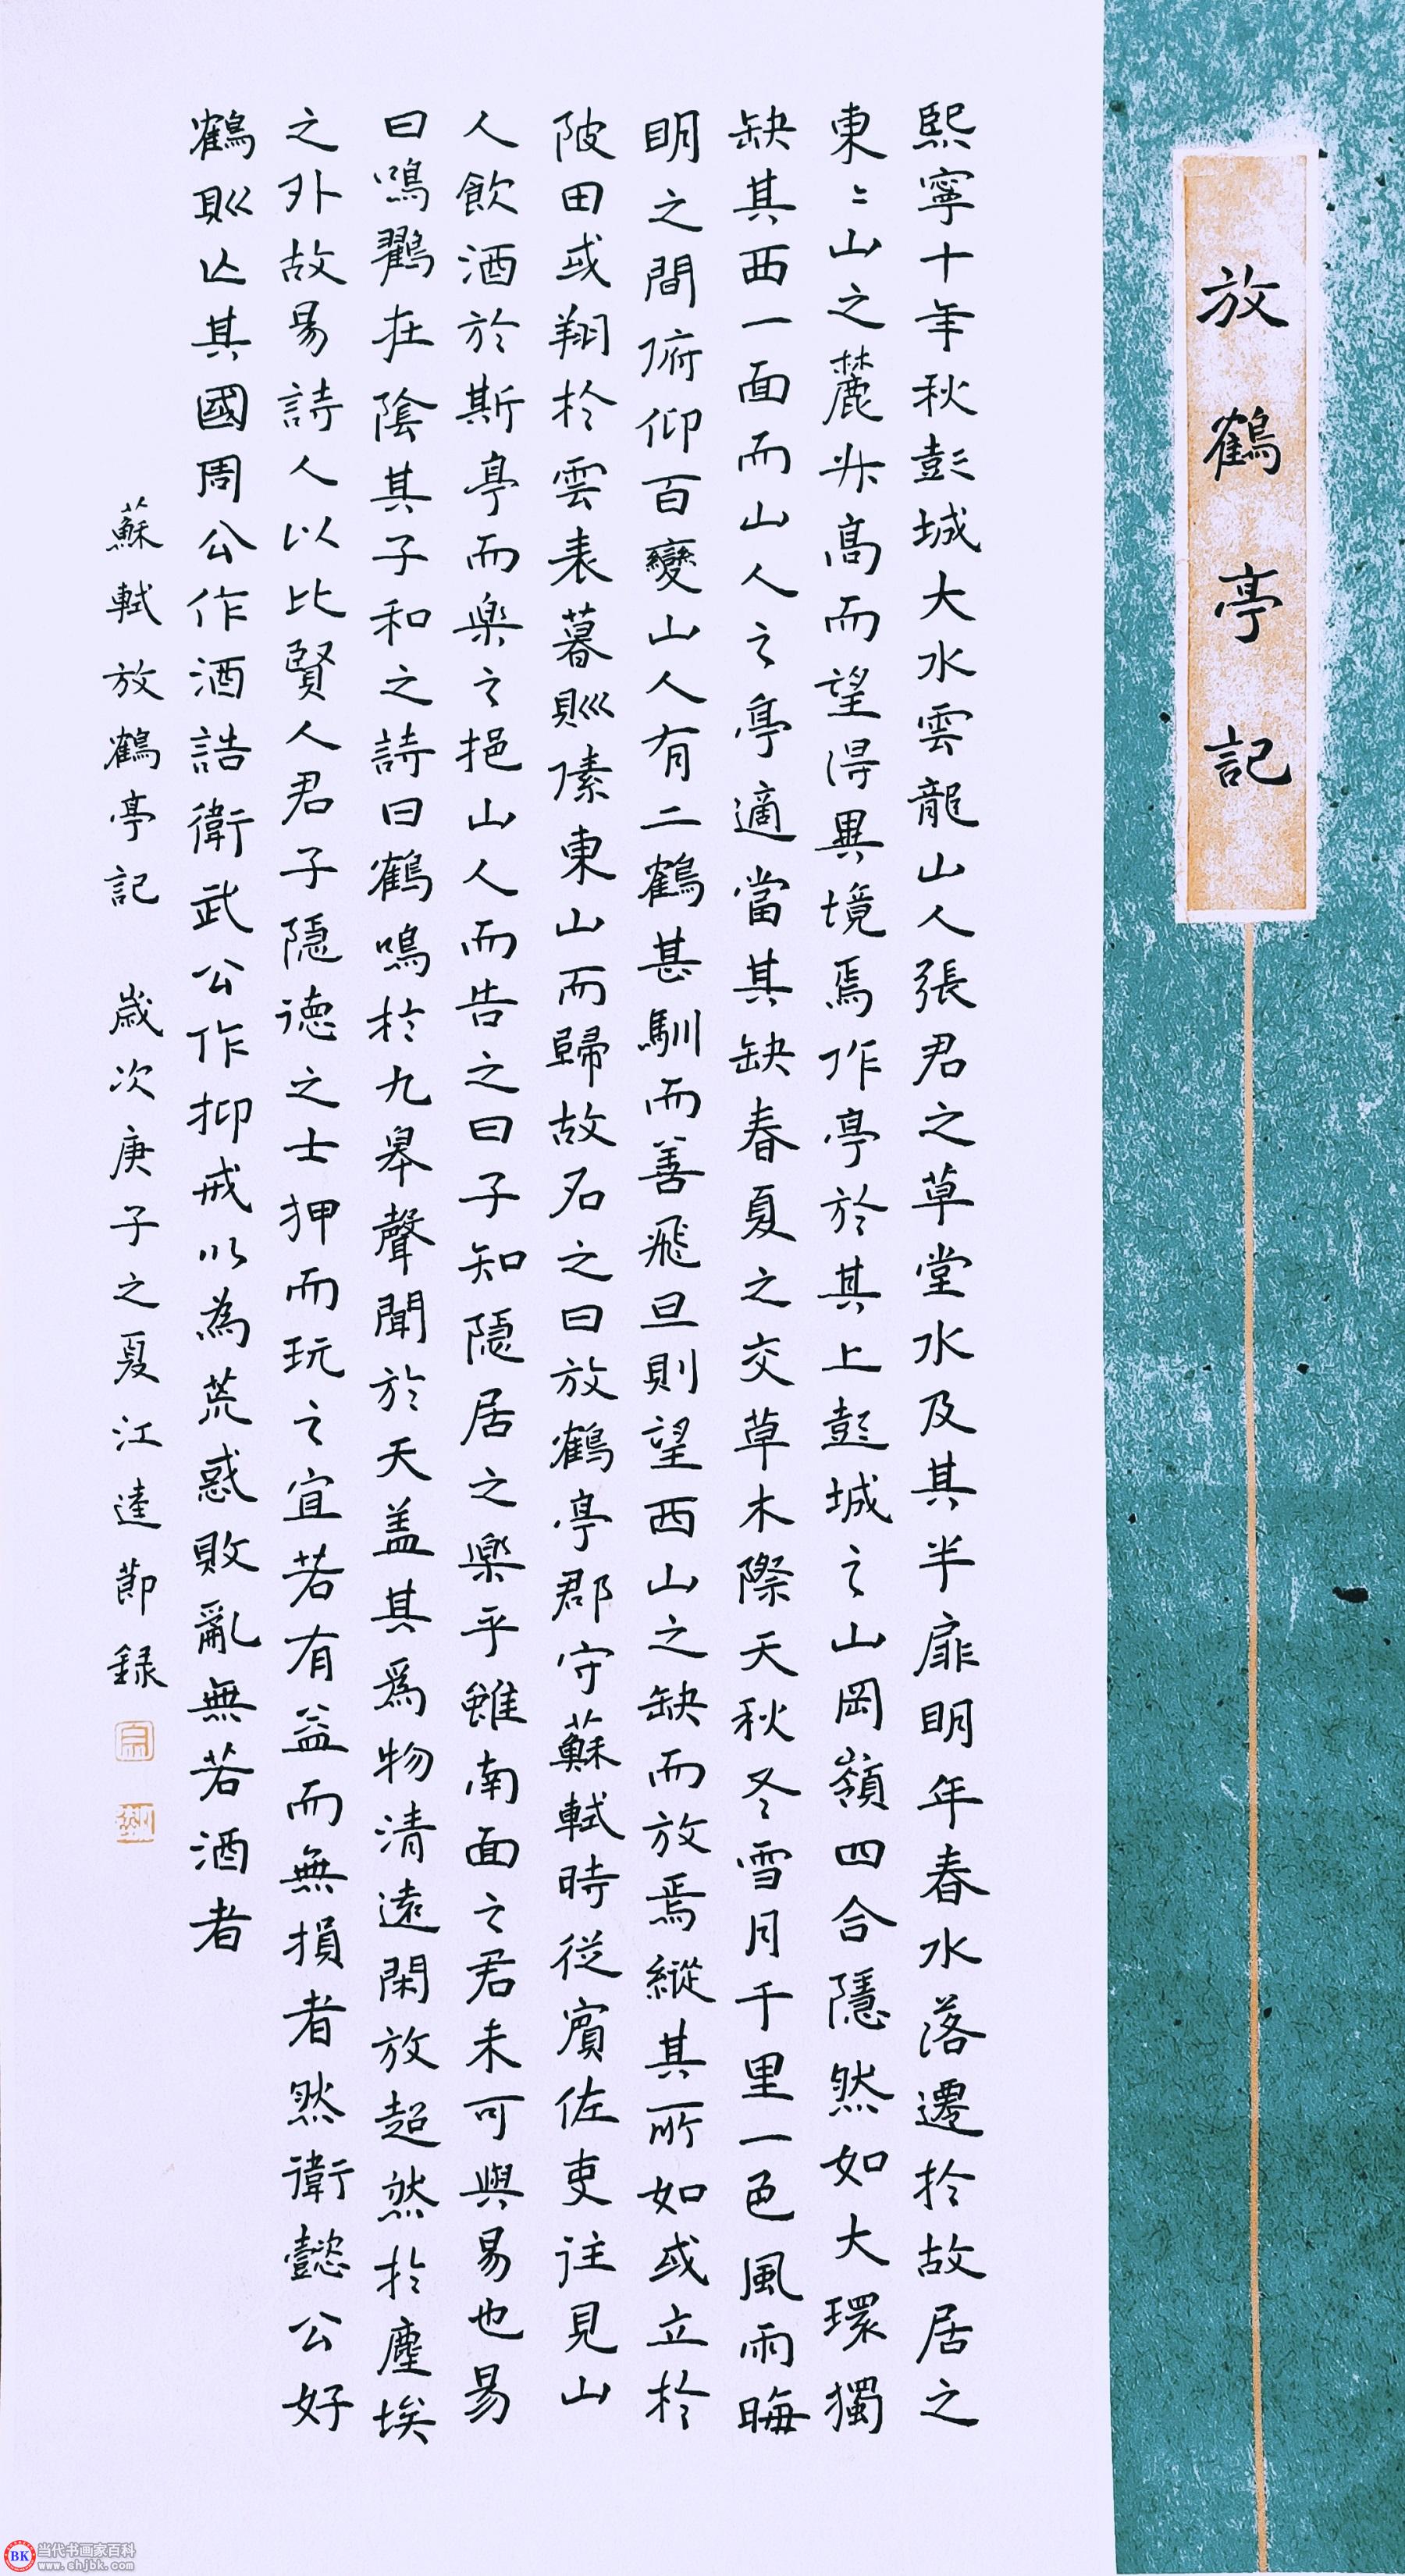 放鶴亭記
熙寧十年秋彭城大水雲龍山人張君之草堂水及其半扉明年春水落遷於故居之
東〻山之麓升高而望得異境焉作亭於其上彭城之山岡嶺四合隱然如大環獨
缺其西一面而山人之亭適當其缺春夏之交草木際天秋冬雪月千里一色風雨晦
明之間俯仰百變山人有二鶴甚馴而善飛旦則望西山之缺而放焉縱其所如或立於
陂田或翔於雲表暮則傃東山而歸故名之曰放鶴亭郡守蘇軾時從賓佐吏往見山
人飲酒於斯亭而樂之挹山人而告之曰子知隱居之樂乎雖南面之君未可與易也易
曰鳴鶴在陰其子和之詩曰鶴鳴於九皋聲聞於天蓋其爲物清遠閑放超然於塵埃
之外故易詩人以比賢人君子隱德之士狎而玩之宜若有益而無損者然衛懿公好
鶴則亡其國周公作酒誥衛武公作抑戒以為荒惑敗亂無若酒者
蘇軾放鶴亭記 歲次庚子之夏江達節録
BK 当代书画家百科
www.shjbk.com